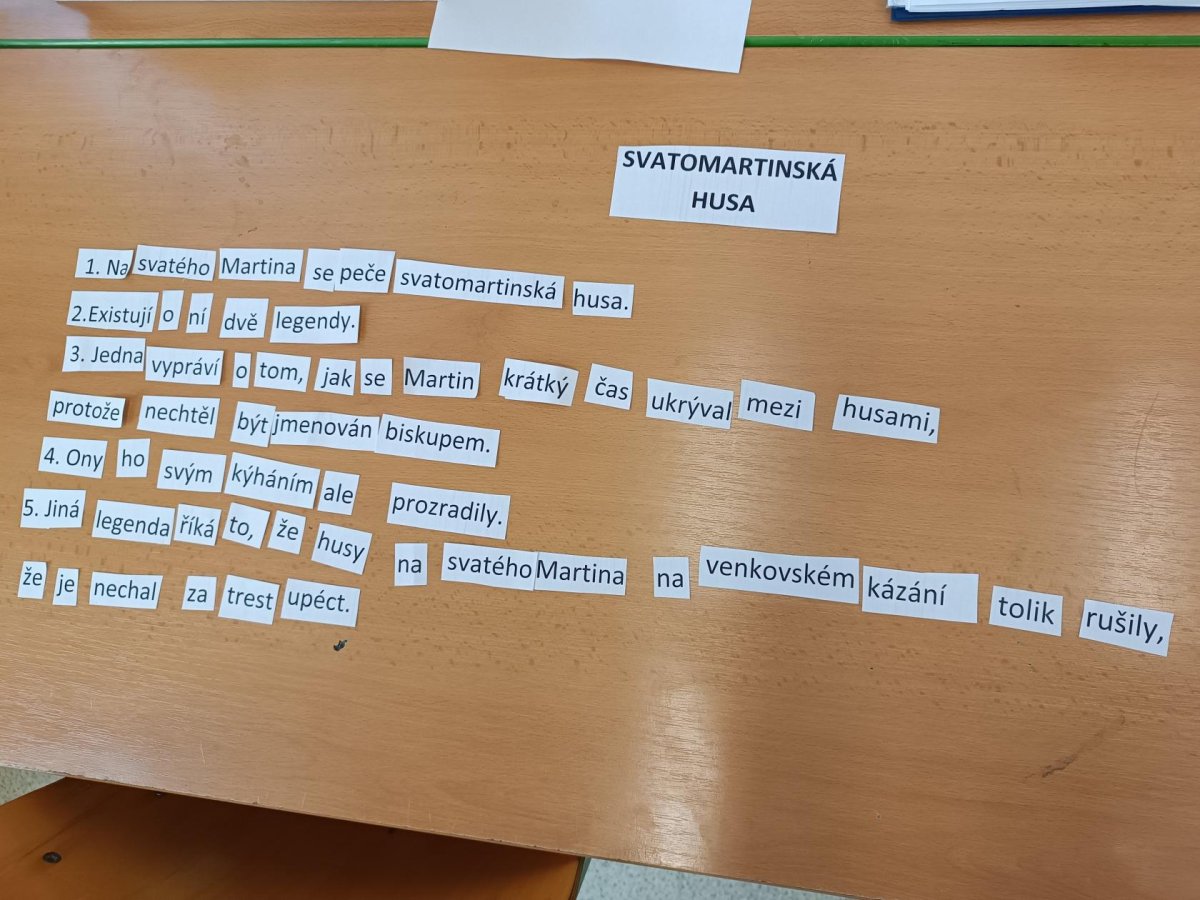 SVATOMARTINSKÁ
HUSA
1. Na svatého Martina se peče svatomartinská husa.
2.Existují o ní dvě legendy.
3. Jedna vypráví o tom, jak se Martin krátký čas ukrýval mezi husami,
protože nechtěl být jmenován biskupem.
4. Ony ho svým kýháním ale prozradily.
5. Jiná legenda říká to, že husy na svatého Martina na venkovském kázání tolik rušily,
že je nechal za trest upéct.